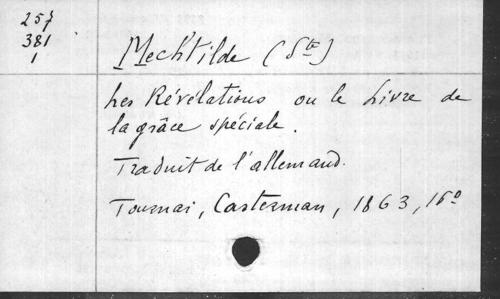 257
381
1
Mechtilde (Ste)
Les Révélations ou le Livre de
la grâce spéciale.
Traduit de l'allemand.
Tournai, Casterman, 1863, 16º